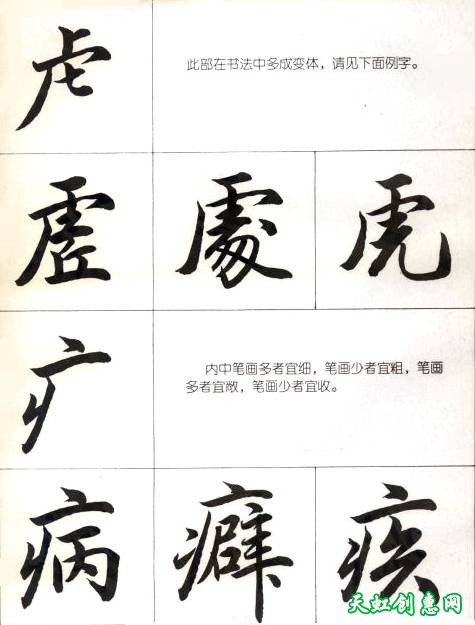 虍
此部在书法中多成变体，请见下面例字。
虚 處 虎
疒
内中笔画多者宜细，笔画少者宜粗，笔画
多者宜敞，笔画少者宜收。
病 癖 疾
天虹创惠网